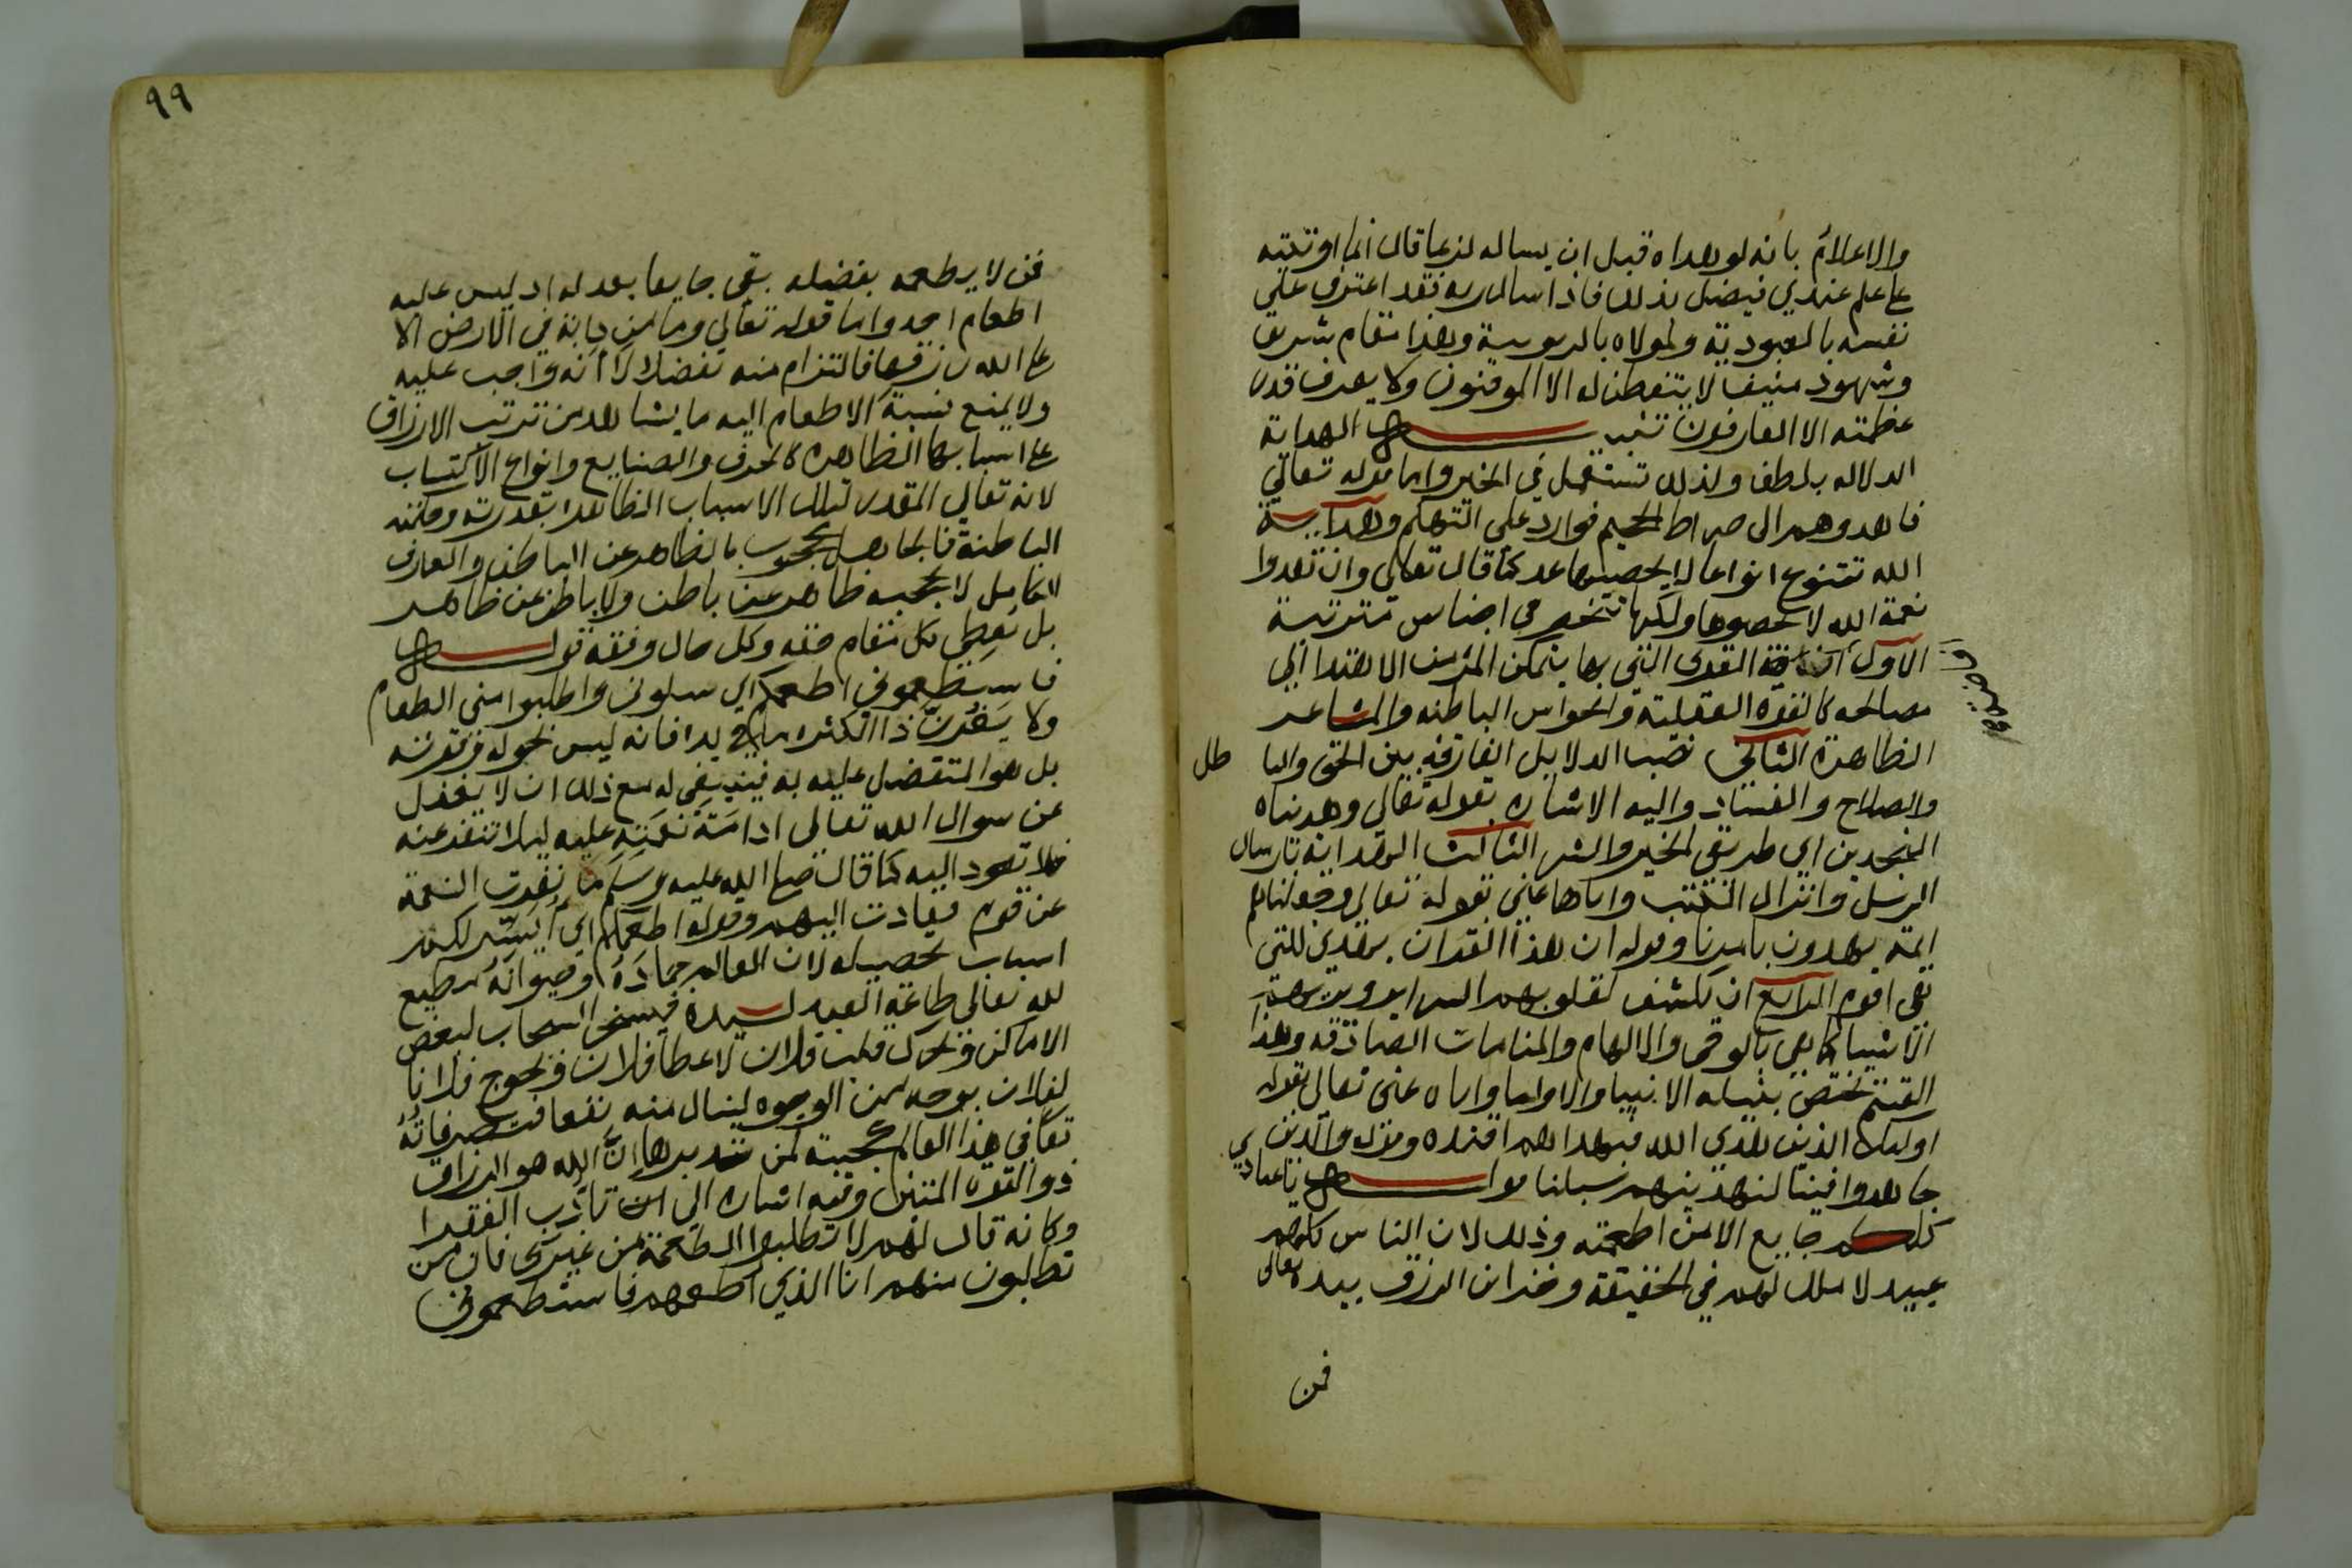 والاعلام بانه لو هداه قبل ان يساله لربما قال انما اوتيته
على علم عندي فيضل بذلك فاذا سال ربه فقد اعترف على
نفسه بالعبودية ولمولاه بالربوبية وهذا مقام شريف
وشهود منيف لا يتفطن له الا الموقنون ولا يعرف قدر
عظمته الا العارفون تنبيه الهداية
الدلاله بلطف ولذلك تستعمل في الخير واما قوله تعالي
فاهدوهم الى صراط الجحيم فوارد على التهكم وهداية
الله تتنوع انواعا لا يحصيها عد كما قال تعالي وان تعدوا
نعمة الله لا تحصوها ولكنها تنحصر في اجناس مترتبة
الاول افاضة القوى التي بها يتمكن المرء من الاهتدا الي
مصالحه كالقوة العقلية والحواس الباطنه والمشاعر
الظاهرة الثاني نصب الدلايل الفارقه بين الحق والبا طل
والصلاح والفساد واليه الاشاره بقوله تعالي وهديناه
النجدين اي طريقي الخير والشر الثالث الهداية بارسال
الرسل وانزال الكتب واياها عني بقوله تعالي وجعلناهم
ايمة يهدون بامرنا وقوله ان هذا القران يهدي للتي
هي اقوم الرابع ان يكشف لقلوبهم السراير ويريهم
الاشيا كما هي بالوحي والالهام والمنامات الصادقه وهذا
القسم يختص بنيله الانبيا والاوليا واياه عنى تعالى بقوله
اوليك الذين هدي الله فبهداهم اقتده وقوله والذين
جاهدوا فينا لنهدينهم سبلنا قوله يا عبادي
كلكم جايع الا من اطعمته وذلك لان الناس كلهم
عبيد لا ملك لهم في الحقيقة وخزاين الرزق بيده تعالى
فمن
٩٩
فمن لا يطعمه بفضله بقي جايعا بعدله اذ ليس عليه
اطعام احد واما قوله تعالي وما من دابة في الارض الا
على الله رزقها فالتزام منه تفضلا لا انه واجب عليه
ولا يمنع نسبة الاطعام اليه ما يشاهد من ترتب الارزاق
على اسبابها الظاهره كالحرف والصنايع وانواع الاكتساب
لانه تعالي المقدر لتلك الاسباب الظاهره بقدرته وحكمته
الباطنة فالجاهل محجوب بالظاهر عن الباطن والعارف
الكامل لا يحجبه ظاهر عن باطن ولا باطن عن ظاهر
بل يعطي كل مقام حقه وكل حال وفقه قوله
فاستطعموني اطعمكم اي سلوني واطلبوا مني الطعام
ولا يغرن ذا الكثره ما في يده فانه ليس بحوله وقوته
بل هو المتفضل عليه به فينبغي له مع ذلك ان لا يغفل
عن سوال الله تعالى ادامة نعمته عليه ليلا تنفد عنه
فلا تعود اليه كما قال صلى الله عليه وسلم ما نفرت النعمة
عن قوم فعادت اليهم وقوله اطعمكم اي ايسر لكم
اسباب تحصيله لان العالم جماده وحيوانه مطيع
لله تعالى طاعة العبد لسيده فيسخر السحاب لبعض
الاماكن ويحرك قلب فلان لاعطا فلان ويحوج فلانا
لفلان بوجه من الوجوه لينال منه نفعا فتصرفاته
تعالى في هذا العالم عجيبة لمن تدبرها ان الله هو الرزاق
ذو القوة المتين وفيه اشاره الي تاديب الفقرا
وكانه قال لهم لا تطلبوا الطعمة من غيري فان من
تطلبون منهم انا الذي اطعمهم فاستطعموني